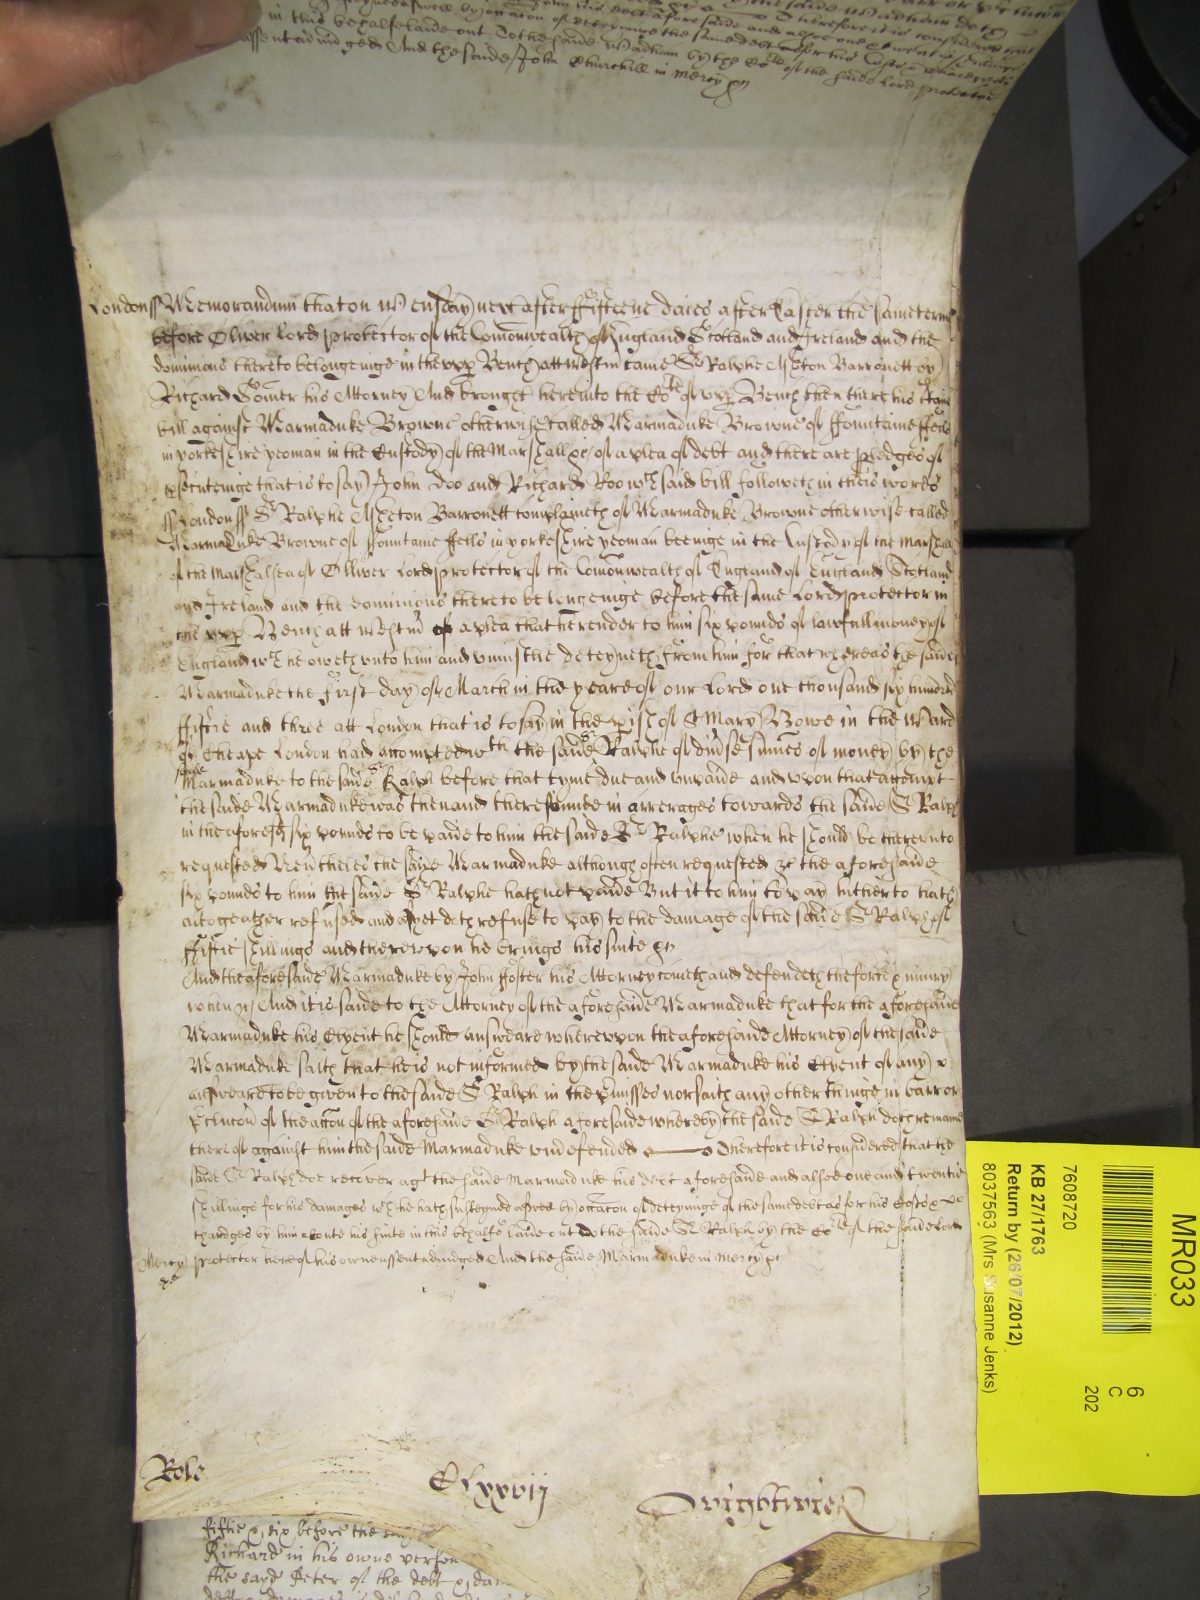 in this behalfe laide out To the saide Wadham by the Cort of the saide Lord protector
assent adiudged And the saide John Churchill in mercy &c
Londonss Memorandum that on Wensday next after fifteene daies after Easter the same terme
before Oliver Lord protector of the Comonwealth of England Scotland and Ireland and the
dominions thereto belongeinge in the upp Bench att Westm came Sr Ralphe Asheton Barronett by
Richard Somer his Attorney And brought here into the Cort of upp Bench then there his certaine
bill against Marmaduke Browne otherwise called Marmaduke Browne of ffountaine ffells
in yorkeshire yeoman in the Custody of the Marshall &c of a plea of debt and there are pledges of
psecuteinge that is to say John Doo and Richard Roo wch said bill followeth in theis words
ss Londonss Sr Ralphe Asheton Barronett complaineth of Marmaduke Browne otherwise called
Marmaduke Browne of ffountaine ffells in yorkeshire yeoman beeinge in the Custody of the Marshall
of the Marshalsea of Olliver Lord protector of the Comonwealth of England of England Scotland
and Ireland and the dominions thereto belongeinge before the same Lord protector in
the upp Bench att Westm of a plea that he render to him six pounds of lawfull money of
England wch he oweth unto him and uniustlie deteyneth from him for that whereas the saide
Marmaduke the first day of March in the yeare of our Lord one thousand six hundred
fiftie and three att London that is to say in the pish of St Mary Bowe in the Ward
of Cheape London had accompted wth the saide Sr Ralphe of divse summes of money by the
saide
Marmaduke to the saide Sr Ralph before that tyme due and unpaide and upon that accompt
the saide Marmaduke was then and there founde in arrerages towards the saide Sr Ralph
in the aforesd six pounds to be paide to him the saide Sr Ralphe when he should be thereunto
requested Nevtheles the saide Marmaduke although often requested &c the aforesaide
six pounds to him the saide Sr Ralphe hath not paide But it to him to pay hitherto hath
altogeather refused and as yet doth refuse to pay to the damage of the saide Sr Ralph of
fiftie shillings and thereupon he brings his suite &c
And the aforesaide Marmaduke by John ffoster his Attorney cometh and defendeth the force & iniury
when &c And it is saide to the Attorney of the aforesaide Marmaduke that for the aforesaide
Marmaduke his Clyent he should answeare whereupon the aforesaide Attorney of the saide
Marmaduke saith that he is not informed by the saide Marmaduke his Clyent of any
answeare to be given to the saide Sr Ralph in the pmisses nor saith any other thinge in barr or
pclucon of the accon of the aforesaide Sr Ralph aforesaide whereby the saide Sr Ralph doth remaine
thereof against him the saide Marmaduke undefended Therefore it is considered that the
saide Sr Ralph doe recover agt the saide Marmaduke his debt aforesaide and alsoe one and twentie
shillings for his damages wch he hath susteyned aswell by occacon of deteyninge of the same debt as for his Costs &
chardges by him aboute his suite in this behalfe laide out To the saide Sr Ralph by the Cort of the saide Lord
protector here of his owne assent adiudged And the saide Marmaduke in mercy &c
Mercy
&c
Role Clxxvij Wightwick
fiftie & six before the
Richard in his owne person
the sayd Peter of the debt & dam
MR033
6
C
202
7608720
KB 27/1763
Return by (26/07/2012)
8037563 (Mrs Susanne Jenks)